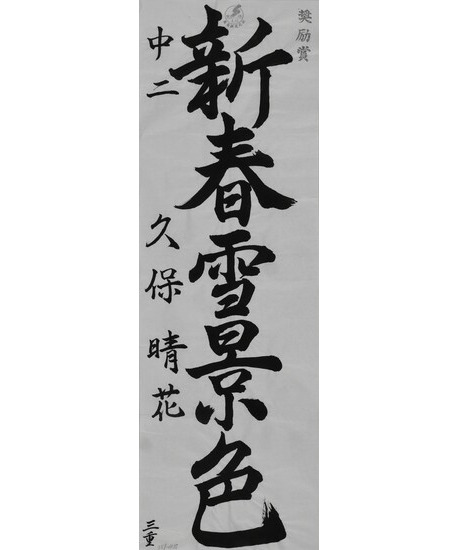 奨励賞
新春雪景色
中二
久保晴花
三重